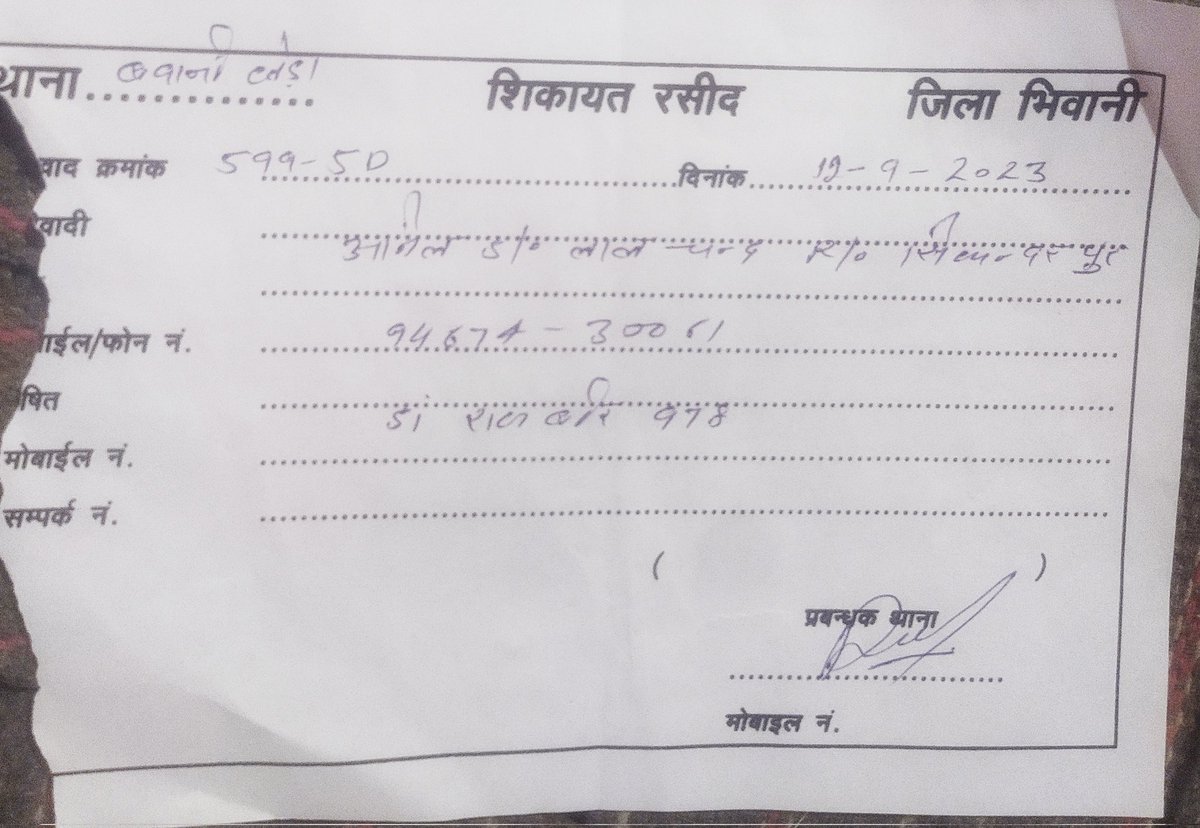 थाना बवानी खेड़ा शिकायत रसीद जिला भिवानी
वाद क्रमांक 599-5D दिनांक 19-9-2023
वादी लाल चन्द R/o सिकन्दरपुर
ाईल/फोन नं. 94674-30061
षित राजबीर 978
मोबाईल नं.
सम्पर्क नं.
( )
प्रबन्धक थाना
मोबाइल नं.